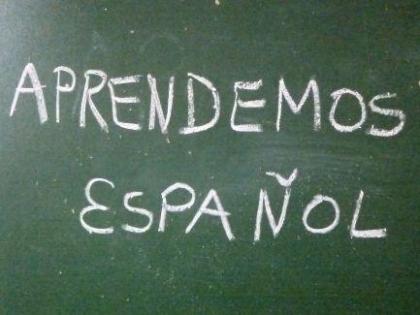 APRENDEMOS
ESPAÑOL